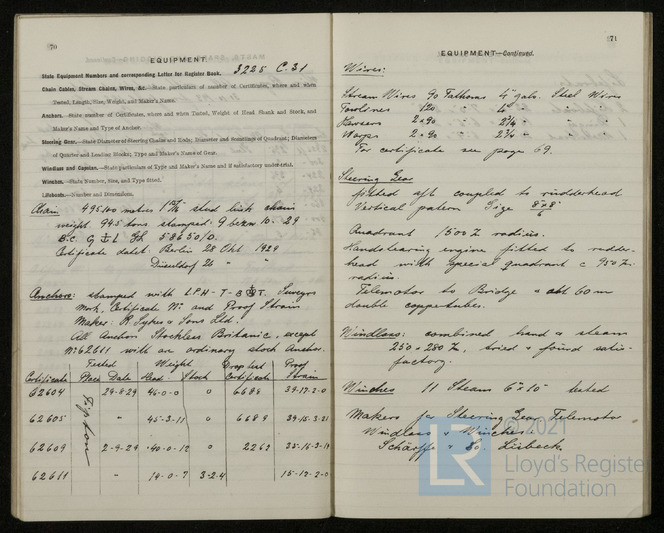 70
EQUIPMENT.
State Equipment Numbers and corresponding Letter for Register Book. 3225 C.31
Chain Cables, Stream Chains, Wires, &c.—State particulars of number of Certificates, where and when
Tested, Length, Size, Weight, and Maker's Name.
Anchors.—State number of Certificates, where and when Tested, Weight of Head Shank and Stock, and
Maker's Name and Type of Anchor.
Steering Gear.—State Diameter of Steering Chains and Rods; Diameter and mountings of Quadrant; Diameters
of Quarter and Leading Blocks; Type and Maker's Name of Gear.
Windlass and Capstan.—State particulars of Type and Maker's Name and if satisfactory under trial.
Winches.—State Number, Size, and Type fitted.
Lifeboats.—Number and Dimensions.
Chain 495.100 metres stud link chain
weight 94.5 tons stamped. 10. 29
586 50/0.
Certificate datet. Berlin 28 Okt 1929
Düsseldorf 26 " "
Anchors: stamped with LPH - T - T. Surveyors
Mark, Certificate No and Proof Strain
Maker: R Sykes & Sons Ltd.
All Anchor Stockless Britanic, except
No 62611 with an ordinary stock Anchor.
Tested Weight Drop test Proof
Certificate Place Date Head Stock Certificate Strain
62604 Tipton 29-8-29 46-0-0 0 6688 39-17-2-0
62605 45-3-11 0 6689 39-15-3-21
62609 2-9-29 40-0-17 2269
62611 " 14-0-7 3-2-4 15-17-2-0
71
EQUIPMENT—Continued.
Wires:
Stream Wires 90 Fathoms 4½" galv. Steel Wires
Towlines 120 " " "
Hawsers 2×90 2¾ " " "
Warps 2×90 2¾ " " "
For certificate see page 69.
Steering Gear
fitted aft coupled to rudderhead
Vertical patern Size 8×8/6
Quadrant 1500 radius.
Handstearing engine fitted to rudder-
head with special quadrant 950
radius
Telemotor to Bridge abt 60 m
double coppertubes.
Windlass: combined hand & steam
250 × 280 , tried & found satis-
factory.
Winches 11 Steam 6"×10" tested
Makers for Steering Gear, Telemotor
Windlass & Winches:
Schärffe & Co. Lübeck.
© 2021
LR
Lloyd's Register
Foundation